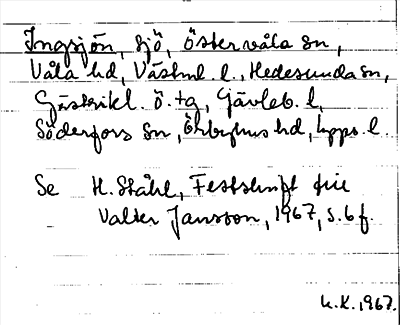 Ingsjön, sjö, Östervåla sn,
Våla hd, Västml. l., Hedesunda sn,
Gästrikl. ö. tg, Gävleb. l,
Söderfors sn, Örbyhus hd, Upps. l.
Se H. Ståhl, Festskrift till
Valter Jansson, 1967, s. 6 f.
K.K. 1967.